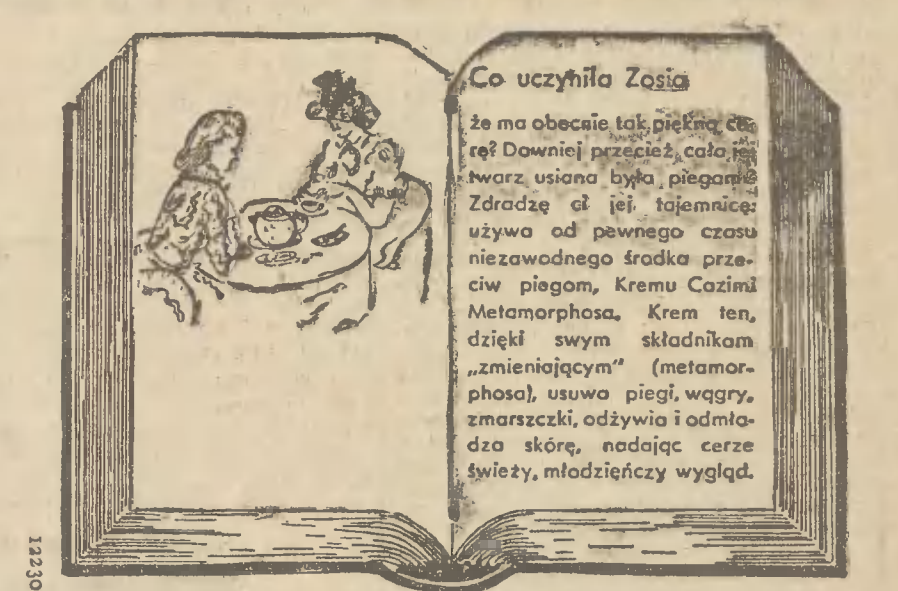 Co uczyniła Zosia
że ma obecnie tak piękną ce-
rę? Dawniej przecież cała jej
twarz usiana była piegami?
Zdradzę ci jej tajemnicę:
używa od pewnego czasu
niezawodnego środka prze-
ciw piegom, Kremu Cazimi
Metamorphosa. Krem ten,
dzięki swym składnikom
„zmieniającym” (metamor-
phosa), usuwa piegi, wągry,
zmarszczki, odżywia i odmła-
dza skórę, nadając cerze
świeży, młodzieńczy wygląd.
12230